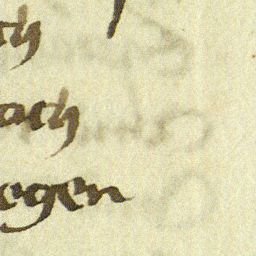 ch
ach
egen